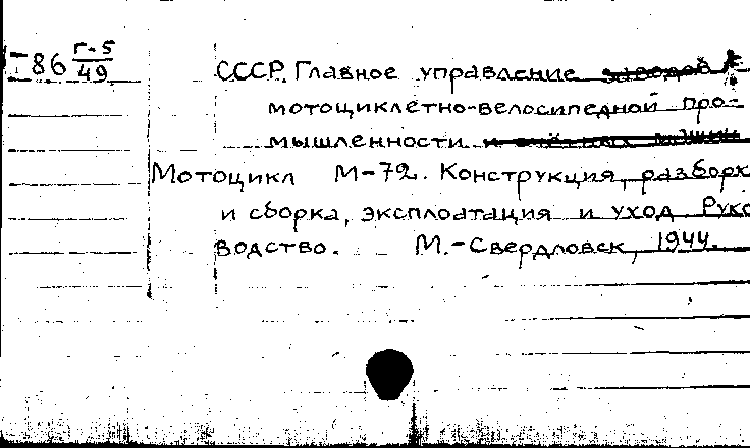 I86 Г-5/49
СССР. Главное управление заводов
мотоциклетно-велосипедной про-
мышленности и счётных машин
Мотоцикл М-72. Конструкция, разборк
и сборка, эксплоатация и уход Руко
водство. М.-Свердловск, 1944.